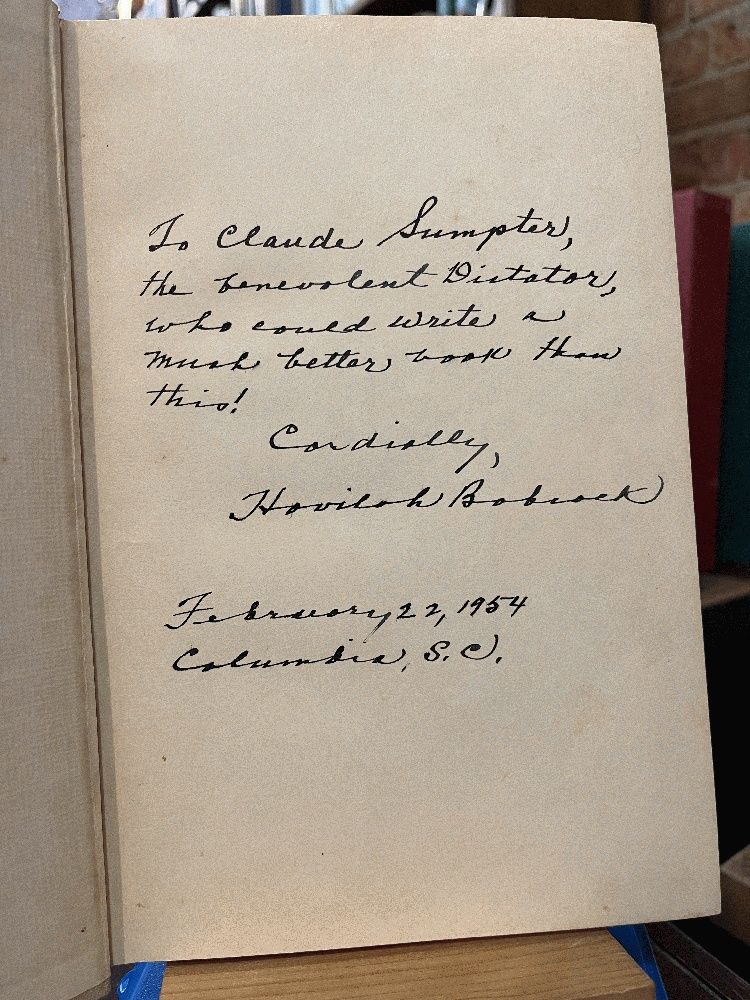 To Claude Sumpter,
the benevolent Dictator,
who could write a
much better book than
this!
Cordially,
Havilah Babcock
February 22, 1954
Columbia, S.C.